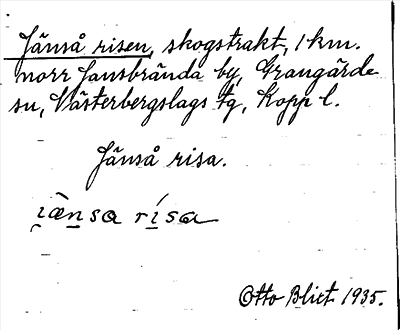 Jänså risen, skogstrakt, 1 km.
norr Jansbrända by, Grangärde
sn, Västerbergslags tg, Kopp l.
Jänså risa.
i̯æ̀nsa rísa
Otto Blixt 1935.